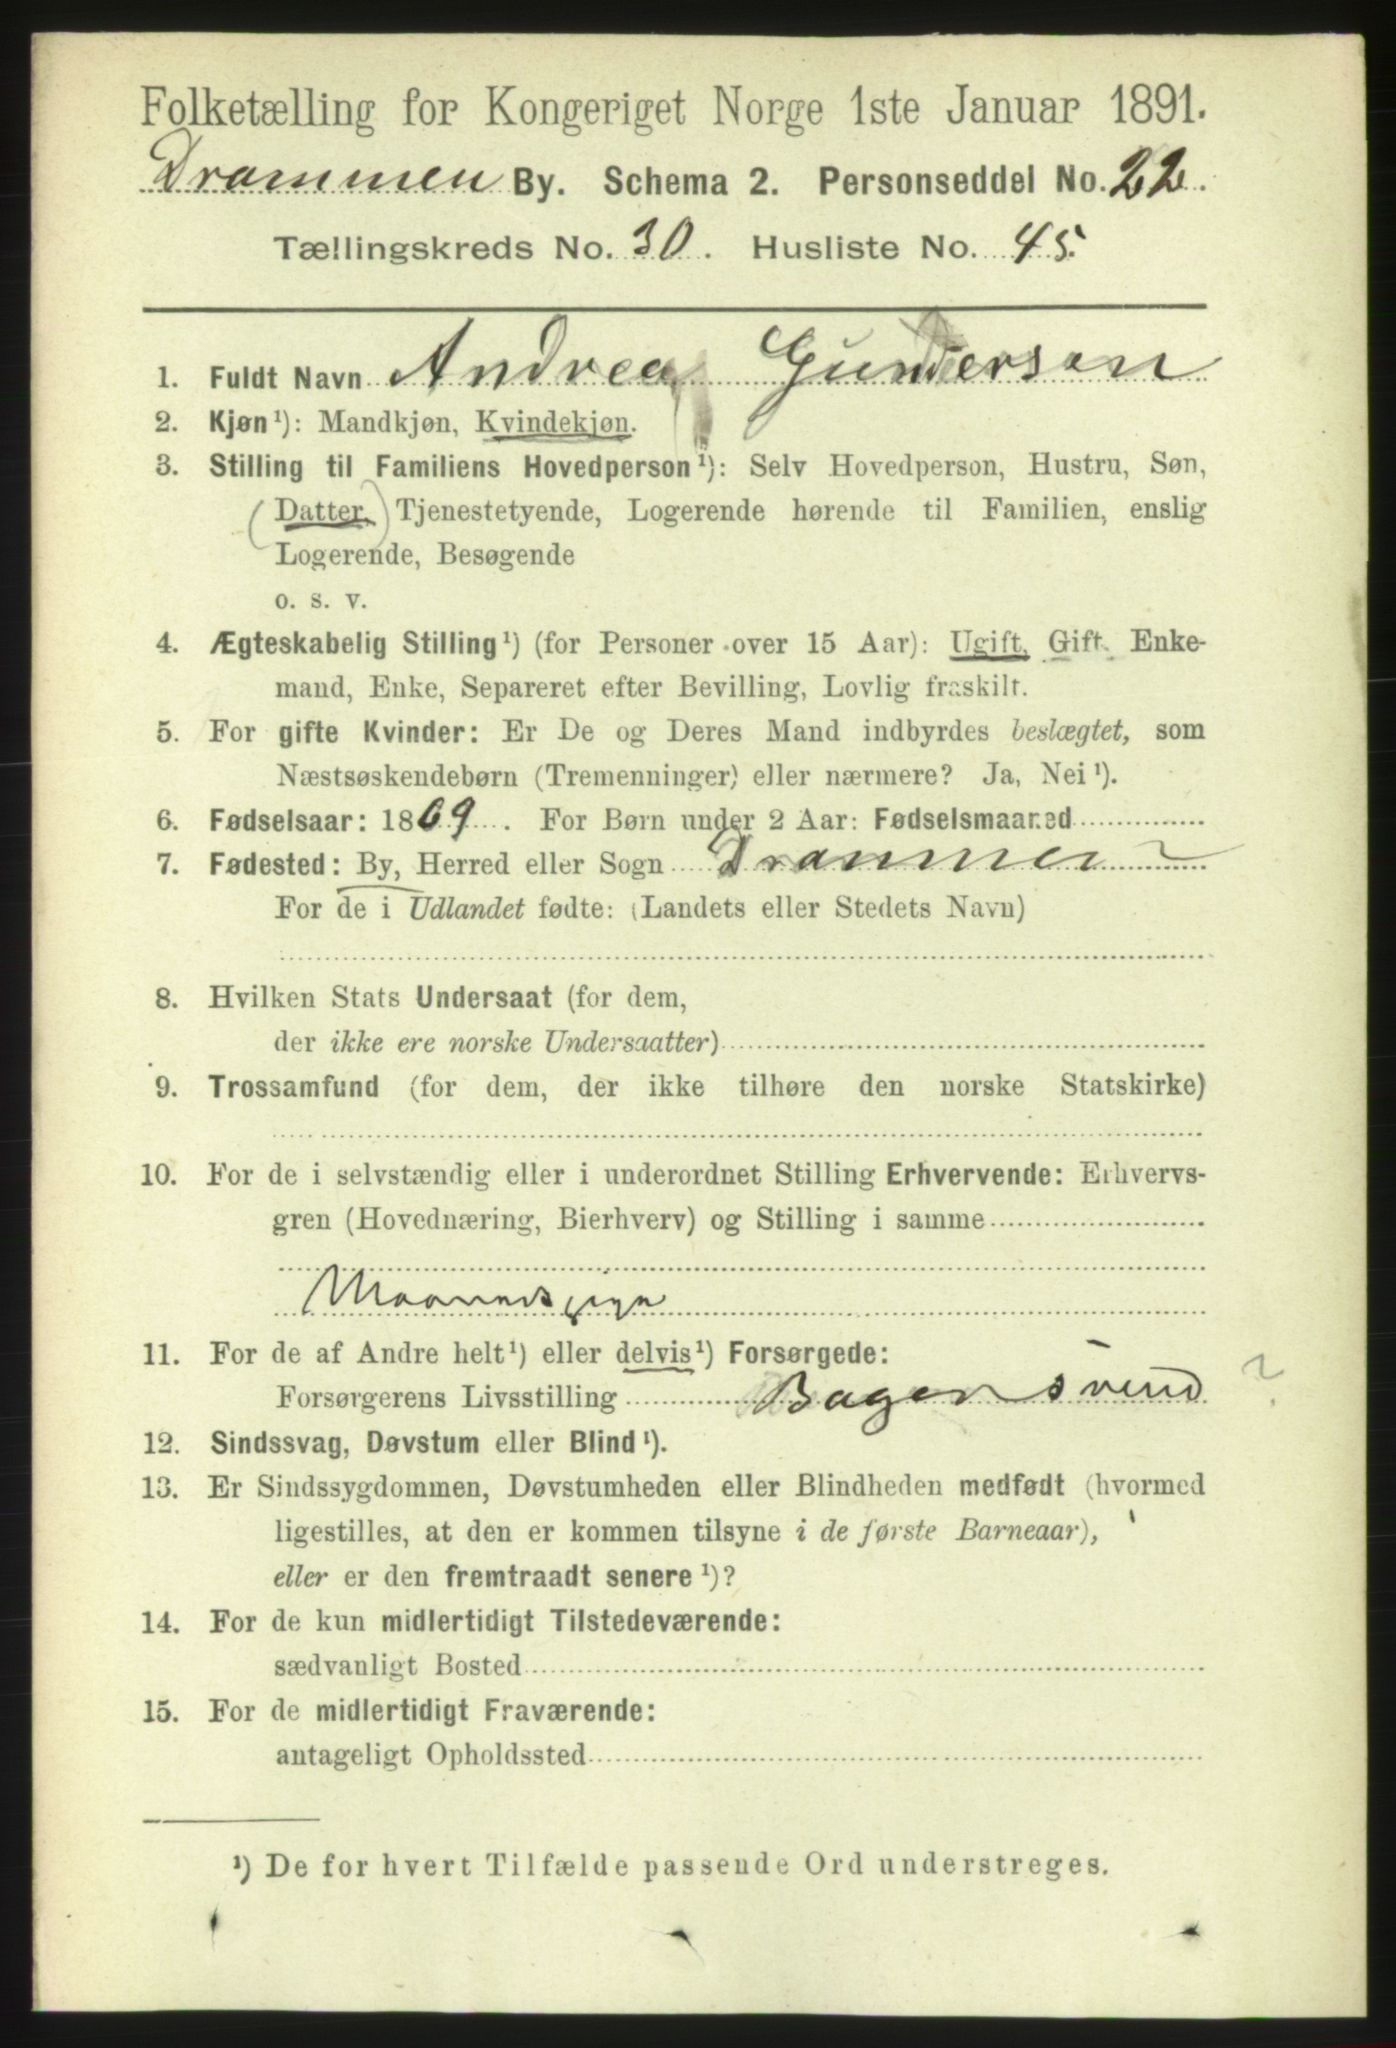 Folketælling for Kongeriget Norge 1ste Januar 1891.
Drammen By. Schema 2. Personseddel No. 22.
Tællingskreds No. 30. Husliste No. 45.
1. Fuldt Navn Andrea Gundersen
2. Kjøn¹): Mandkjøn, Kvindekjøn.
3. Stilling til Familiens Hovedperson¹): Selv Hovedperson, Hustru, Søn,
(Datter,) Tjenestetyende, Logerende hørende til Familien, enslig
Logerende, Besøgende
o. s. v.
4. Ægteskabelig Stilling¹) (for Personer over 15 Aar): Ugift, Gift, Enke-
mand, Enke, Separeret efter Bevilling, Lovlig fraskilt.
5. For gifte Kvinder: Er De og Deres Mand indbyrdes beslægtet, som
Næstsøskendebørn (Tremenninger) eller nærmere? Ja, Nei¹).
6. Fødselsaar: 1869. For Børn under 2 Aar: Fødselsmaaned
7. Fødested: By, Herred eller Sogn Drammen
For de i Udlandet fødte: (Landets eller Stedets Navn)
8. Hvilken Stats Undersaat (for dem,
der ikke ere norske Undersaatter)
9. Trossamfund (for dem, der ikke tilhøre den norske Statskirke)
10. For de i selvstændig eller i underordnet Stilling Erhvervende: Erhvervs-
gren (Hovednæring, Bierhverv) og Stilling i samme
11. For de af Andre helt¹) eller delvis¹) Forsørgede:
Forsørgerens Livsstilling Bagersvend ?
12. Sindssvag, Døvstum eller Blind¹).
13. Er Sindssygdommen, Døvstumheden eller Blindheden medfødt (hvormed
ligestilles, at den er kommen tilsyne i de første Barneaar),
eller er den fremtraadt senere¹)?
14. For de kun midlertidigt Tilstedeværende:
sædvanligt Bosted
15. For de midlertidigt Fraværende:
antageligt Opholdssted
¹) De for hvert Tilfælde passende Ord understreges.